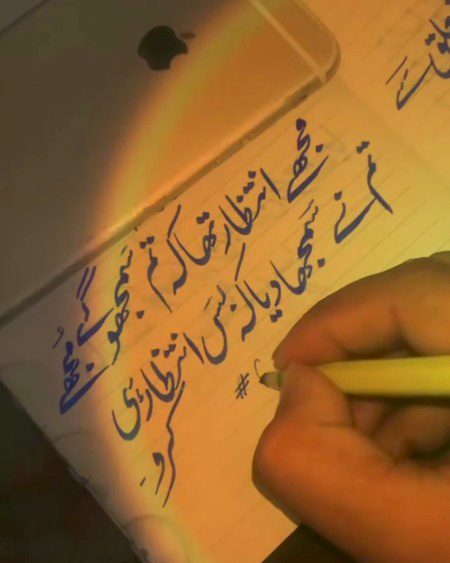 مجھے انتظار تھا کہ تم سمجھو گے مُجھے
تم نے سمجھا دیا کہ بس انتظار ہی
کرو
#